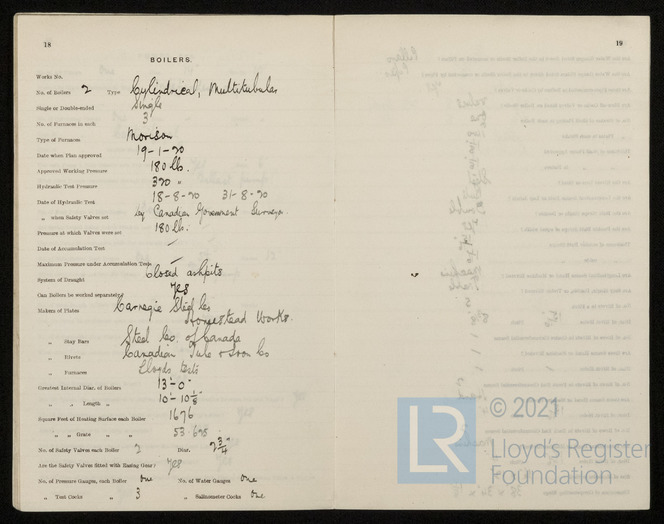 18
BOILERS.
Works No.
No. of Boilers 2 Type Cylindrical, Multitubular
Single or Double-ended Single
No. of Furnaces in each 3
Type of Furnaces Morison
Date when Plan approved 19-1-20
Approved Working Pressure 180 lb.
Hydraulic Test Pressure 320 "
Date of Hydraulic Test 18-8-20 31-8-20
" when Safety Valves set by Canadian Government Surveyor.
Pressure at which Valves were set 180 lb.
Date of Accumulation Test —
Maximum Pressure under Accumulation Test —
System of Draught Closed ashpits
Can Boilers be worked separately Yes
Makers of Plates Carnegie Steel Co
Homestead Works.
" Stay Bars Steel Co. of Canada
" Rivets Canadian Tube & Iron Co
" Furnaces Lloyds tests
Greatest Internal Diam. of Boilers 13'-0"
" " Length " 10'-10⅛"
Square Feet of Heating Surface each Boiler 1676
" " Grate " " 53.695
No. of Safety Valves each Boiler 2 Diar. 2¾"
Are the Safety Valves fitted with Easing Gear? Yes
No. of Pressure Gauges, each Boiler One No. of Water Gauges One
" Test Cocks " 3 " Salinometer Cocks One
19
© 2021
LR
Lloyd's Register
Foundation